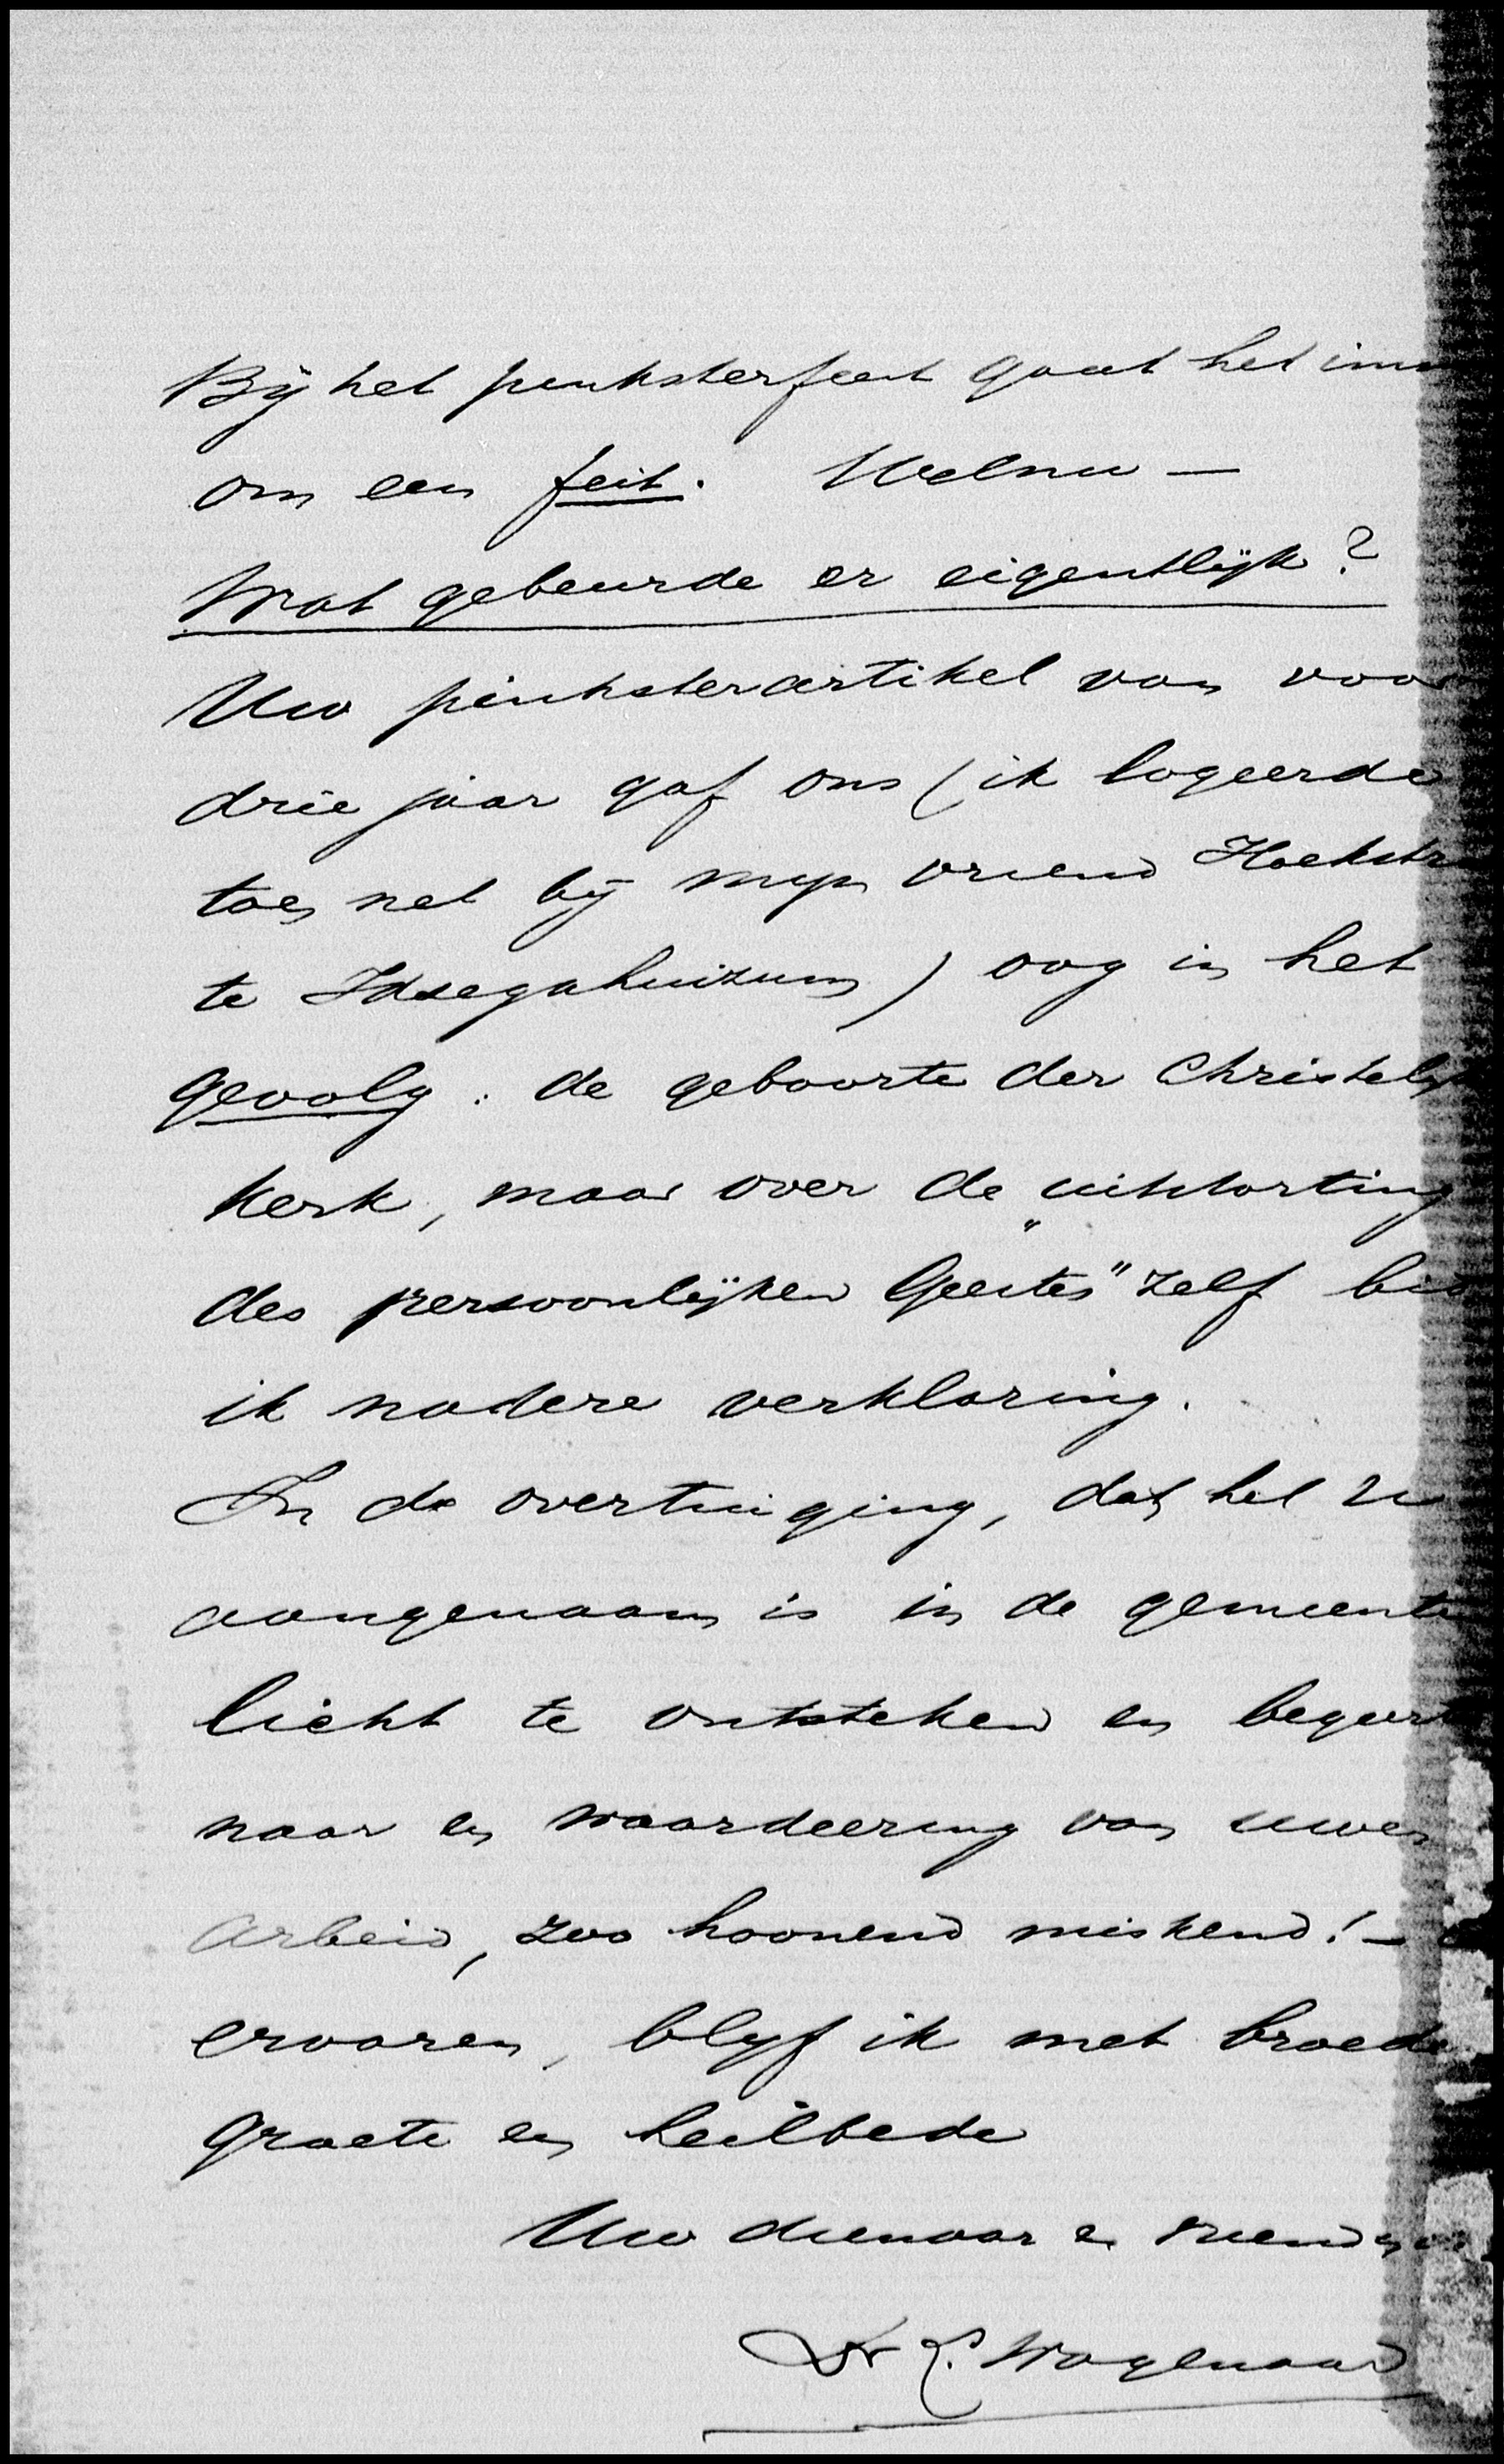 Bij het pinksterfeest gaat het imm
om een feit. Welnu —
Wat gebeurde er eigentlijk?
Uw pinksterartikel van voor
drie jaar gaf ons (ik logeerde
toen net bij mijn vriend Hoekstra
te Idsegahuizum) oog in het
gevolg: de geboorte der Christelijk
kerk, maar over de „uitstorting
des persoonlijken Geestes" zelf bid
ik nadere verklaring.
In de overtuiging, dat het U
aangenaam is in de gemeente
licht te ontsteken en begeerte
naar en waardeering van uwen
arbeid, zoo hoonend miskend! —
ervaren, blijf ik met broeder
groete en heilbede
Uw dienaar en vriend
Dr L. Wagenaar